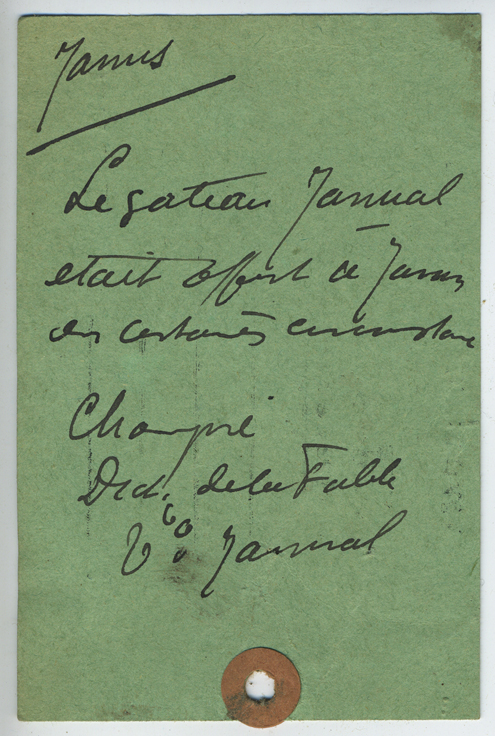 Janus
Le gateau Janual
etait offert à Janus
en certaines circonstanc
Chompré
Dict. de la Fable
Vo Janual